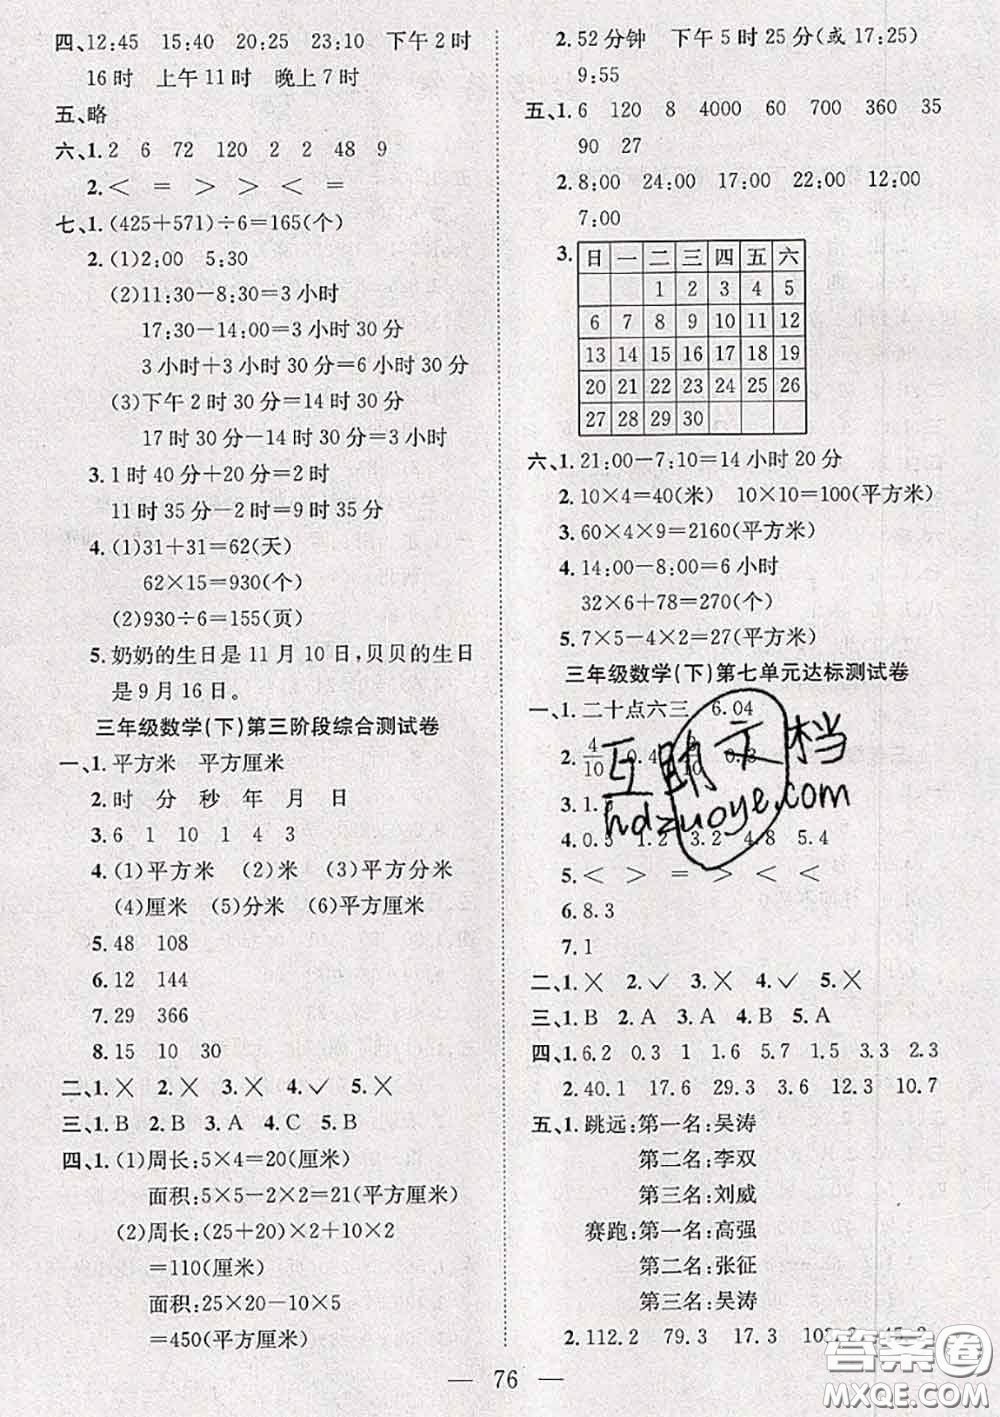 四、12:45 15:40 20:25 23:10 下午2时
16时 上午11时 晚上7时
五、略
六、1. 2 6 72 120 2 2 48 9
2. < = > > < =
七、1. (425+571)÷6=165(个)
2. (1)2:00 5:30
(2)11:30-8:30=3小时
17:30-14:00=3小时30分
3小时+3小时30分=6小时30分
(3)下午2时30分=14时30分
17时30分-14时30分=3小时
3. 1时40分+20分=2时
11时35分-2时=9时35分
4. (1)31+31=62(天)
62×15=930(个)
(2)930÷6=155(页)
5. 奶奶的生日是11月10日,贝贝的生日
是9月16日。
三年级数学(下)第三阶段综合测试卷
一、1. 平方米 平方厘米
2. 时 分 秒 年 月 日
3. 6 1 10 1 4 3
4. (1)平方米 (2)米 (3)平方分米
(4)厘米 (5)分米 (6)平方厘米
5. 48 108
6. 12 144
7. 29 366
8. 15 10 30
二、1. × 2. × 3. × 4. ✓ 5. ×
三、1. B 2. B 3. A 4. C 5. B
四、1. (1)周长:5×4=20(厘米)
面积:5×5-2×2=21(平方厘米)
(2)周长:(25+20)×2+10×2
=110(厘米)
面积:25×20-10×5
=450(平方厘米)
2. 52分钟 下午5时25分(或17:25)
9:55
五、1. 6 120 8 4000 60 700 360 35
90 27
2. 8:00 24:00 17:00 22:00 12:00
7:00
3. 日 一 二 三 四 五 六
1 2 3 4 5
6 7 8 9 10 11 12
13 14 15 16 17 18 19
20 21 22 23 24 25 26
27 28 29 30
六、1. 21:00-7:10=14小时20分
2. 10×4=40(米) 10×10=100(平方米)
3. 60×4×9=2160(平方米)
4. 14:00-8:00=6小时
32×6+78=270(个)
5. 7×5-4×2=27(平方米)
三年级数学(下)第七单元达标测试卷
一、1. 二十点六三 6.04
2. 4/10 0.4 10 0.3
3. 1.
4. 0.5 1.2 3.2 4.8 5.4
5. < > = > < <
6. 8.3
7. 1
二、1. × 2. ✓ 3. × 4. ✓ 5. ×
三、1. B 2. A 3. A 4. B 5. A
四、1. 6.2 0.3 1 1.6 5.7 1.5 3.3 2.3
2. 40.1 17.6 29.3 3.6 12.3 10.7
五、1. 跳远:第一名:吴涛
第二名:李双
第三名:刘威
赛跑:第一名:高强
第二名:张征
第三名:吴涛
2. 112.2 79.3 17.3
互助文档
hdzuoye.com
76
答案圈
MXQE.COM